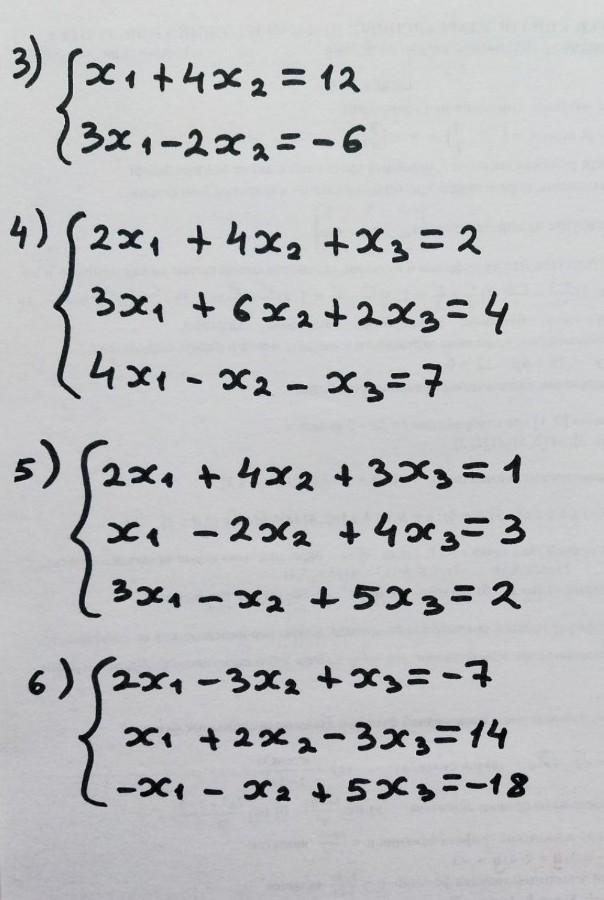 3) x₁ + 4x₂ = 12
3x₁ - 2x₂ = -6
4) 2x₁ + 4x₂ + x₃ = 2
3x₁ + 6x₂ + 2x₃ = 4
4x₁ - x₂ - x₃ = 7
5) 2x₁ + 4x₂ + 3x₃ = 1
x₁ - 2x₂ + 4x₃ = 3
3x₁ - x₂ + 5x₃ = 2
6) 2x₁ - 3x₂ + x₃ = -7
x₁ + 2x₂ - 3x₃ = 14
-x₁ - x₂ + 5x₃ = -18